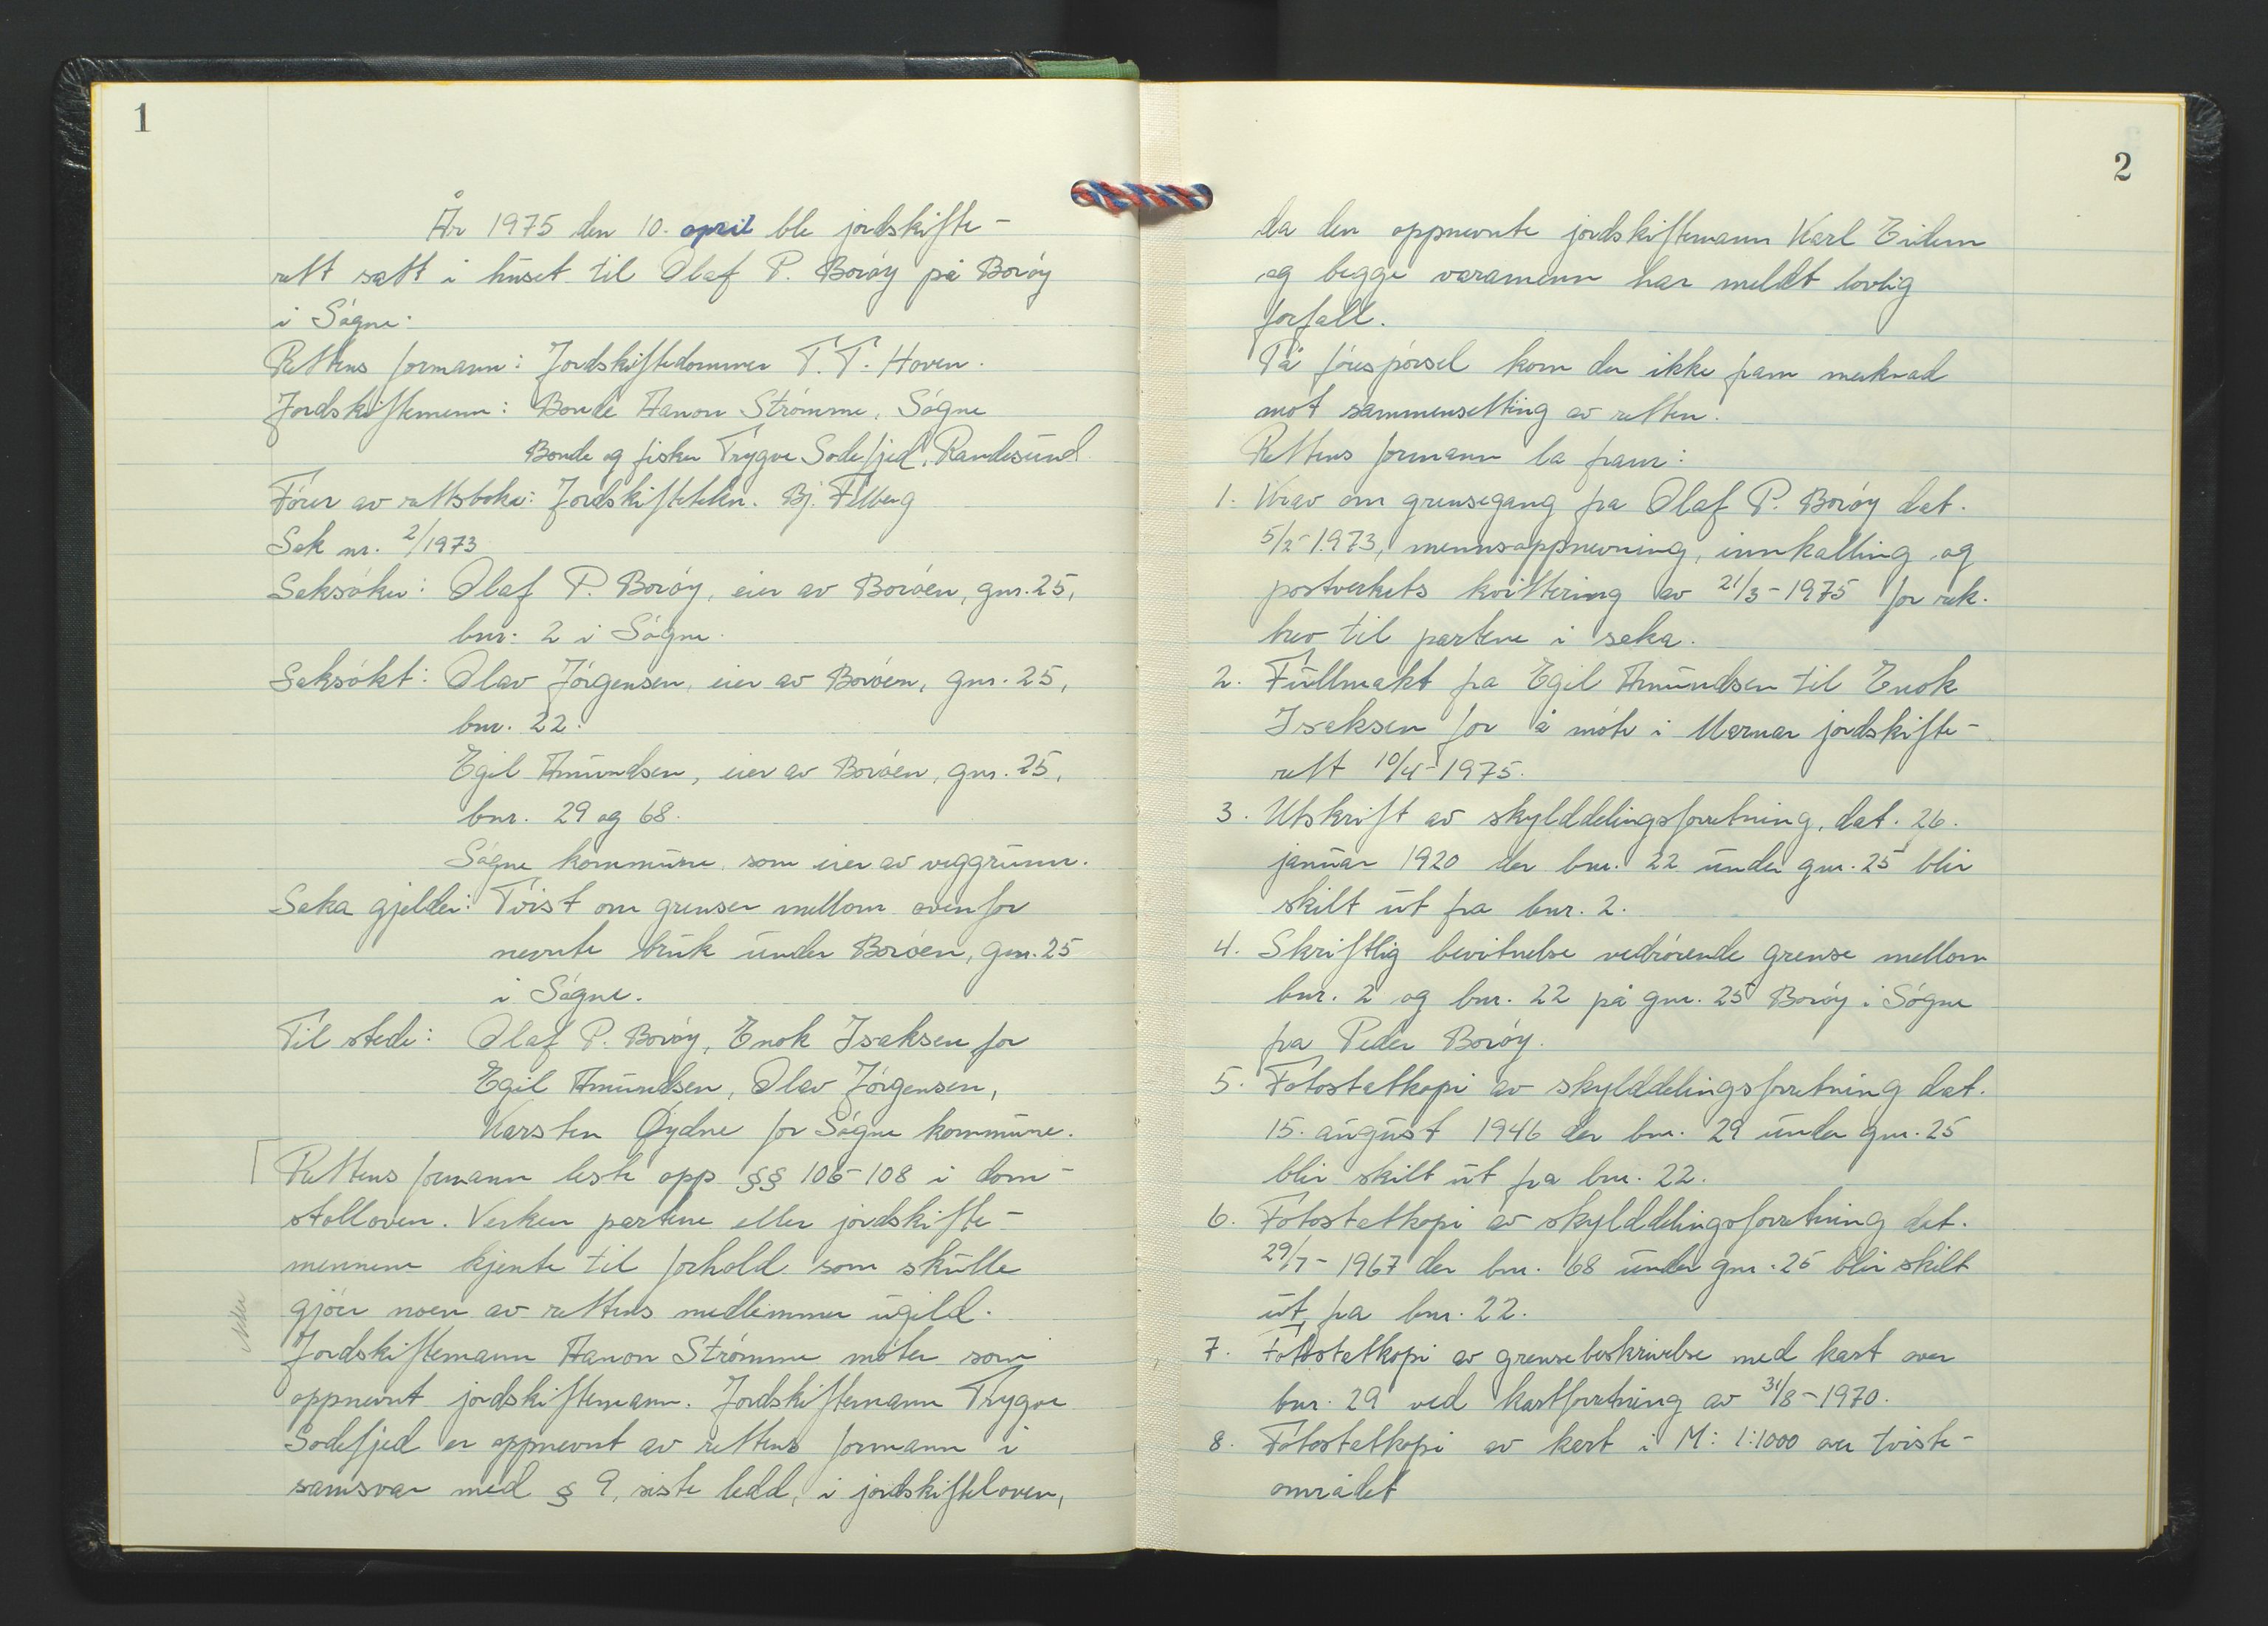 1
År 1975 den 10. april ble jordskifte-
rett satt i huset til Olaf P. Borøy på Borøy
i Søgne:
Rettens formann: Jordskiftedommer T. T. Hoven.
Jordskiftemenn: Bonde Hanon Strømme, Søgne
Bonde og fisker Trygve Sodefjed, Randesund
Fører av rettsboka: Jordskiftetekn. Bj. Filberg
Sak nr. 2/1973
Saksøker: Olaf P. Borøy, eier av Borøen, gnr. 25,
bnr. 2 i Søgne.
Saksøkt: Olav Jørgensen, eier av Borøen, gnr. 25,
bnr. 22.
Egil Amundsen, eier av Borøen, gnr. 25,
bnr. 29 og 68.
Søgne kommune som eier av veggrunn.
Saka gjelder: Tvist om grenser mellom ovenfor
nevnte bruk under Borøen, gnr. 25
i Søgne.
Til stede: Olaf P. Borøy, Enok Isaksen for
Egil Amundsen, Olav Jørgensen,
Karsten Øydne for Søgne kommune.
Rettens formann leste opp §§ 106-108 i dom-
stolloven. Verken partene eller jordskifte-
mennene kjente til forhold som skulle
gjøre noen av rettens medlemmer ugild.
Jordskiftemann Hanon Strømme møter som
oppnevnt jordskiftemann. Jordskiftemann Trygve
Sodefjed er oppnevnt av rettens formann i
samsvar med § 9, siste ledd, i jordskifteloven,
2
da den oppnevnte jordskiftemann Karl Eidem
og begge varamenn har meldt lovlig
forfall.
På førespørsel kom der ikke fram merknad
mot sammensetting av retten.
Rettens formann la fram:
1. Krav om grensegang fra Olaf P. Borøy dat.
5/2-1973, mennsoppnevning, innkalling og
postverkets kvittering av 21/3-1975 for rek.
brev til partene i saka.
2. Fullmakt fra Egil Amundsen til Enok
Isaksen for å møte i Marnar jordskifte-
rett 10/4-1975.
3. Utskrift av skylddelingsforretning, dat. 26.
januar 1920 der bnr. 22 under gnr. 25 blir
skilt ut fra bnr. 2.
4. Skriftlig bevitnelse vedrørende grense mellom
bnr. 2 og bnr. 22 på gnr. 25 Borøy i Søgne
fra Peder Borøy.
5. Fotostatkopi av skylddelingsforretning dat.
15. august 1946 der bnr. 29 under gnr. 25
blir skilt ut fra bnr. 22.
6. Fotostatkopi av skylddelingsforretning dat.
29/7-1967 der bnr. 68 under gnr. 25 blir skilt
ut fra bnr. 22.
7. Fotostatkopi av grensebeskrivelse med kart over
bnr. 29 ved kartforretning av 31/8-1970.
8. Fotostatkopi av kart i M: 1:1000 over tviste-
området